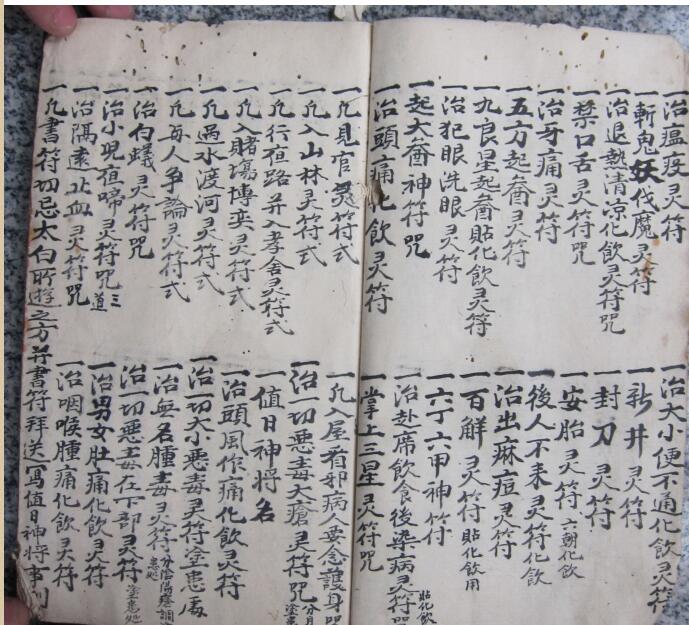 一治瘟疫灵符
一斬鬼妖伐魔灵符
一治退熱清凉化飲灵符咒
一禁口舌灵符咒
一治牙痛灵符
一五方起煞灵符
一九良星起煞貼化飲灵符
一治犯眼洗眼灵符
一起大煞神符咒
一治頭痛化飲灵符
一治大小便不通化飲灵符
一新井灵符
一封刀灵符
一安胎灵符 六朝化飲
一後人不来灵符化飲
一治出麻痘灵符
一百解灵符 貼化飲用
一六丁六甲神符
一治赴席飲食後染病灵符 貼化飲
一掌上三星灵符咒
一凡見官灵符式
一凡入山林灵符式
一凡行夜路并入孝舍灵符式
一凡入賭場博奕灵符式
一凡過水渡河灵符式
一凡与人争論灵符式
一治白蟻灵符咒
一治小児夜啼灵符咒 三道
一治隔遠止血灵符咒
一凡書符切忌太白所遊之方并書符拜送寫值日神將
一凡入屋看邪病人要念護身咒
一治一切悪毒大瘡灵符咒
一值日神將名
一治頭風作痛化飲灵符
一治一切大小悪毒灵符塗患處
一治無名腫毒灵符
一治一切悪毒在下部灵符 塗患処
一治男女肚痛化飲灵符
一治咽喉腫痛化飲灵符